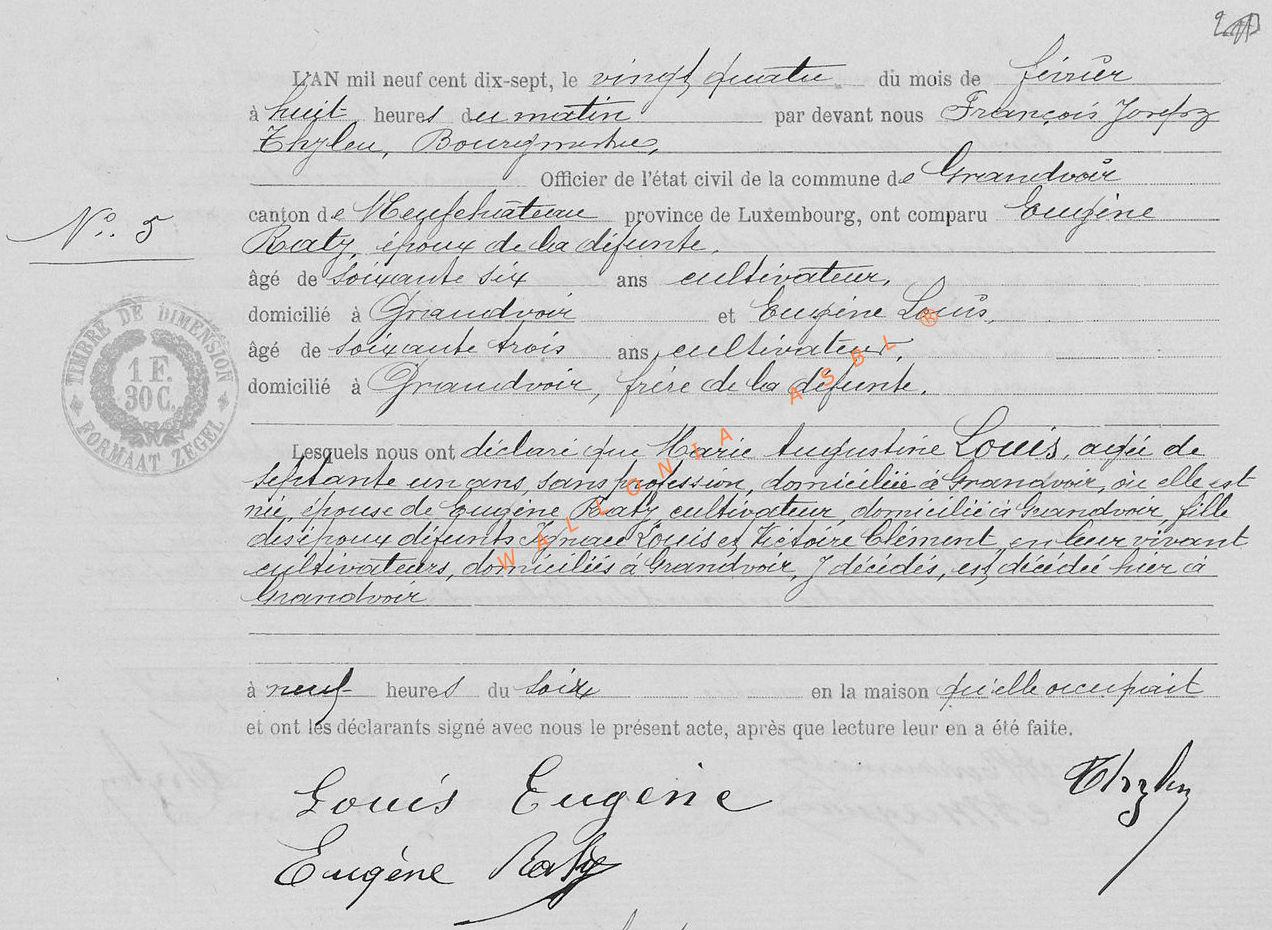 L'AN mil neuf cent dix-sept, le vingt quatre du mois de février
à huit heures du matin par devant nous François Joseph
Thylen, Bourgmestre,
Officier de l'état civil de la commune de Grandvoir
canton de Neufchâteau province de Luxembourg, ont comparu Eugène
N° 5
Raty, époux de la défunte,
âgé de soixante six ans cultivateur,
domicilié à Grandvoir et Eugène Louis,
âgé de soixante trois ans, cultivateur,
domicilié à Grandvoir, frère de la défunte.
TIMBRE DE DIMENSION
1 F.
30 C.
FORMAAT ZEGEL
WALLONIA ASBL ®
Lesquels nous ont déclaré que Marie Augustine Louis, agée de
septante un ans, sans profession, domiciliée à Grandvoir, où elle est
née, épouse de Eugène Raty, cultivateur, domicilié à Grandvoir, fille
des époux défunts Ignace Louis et Victoire Clément, en leur vivant
cultivateurs, domiciliés à Grandvoir, y décédés, est décédée hier à
Grandvoir
à neuf heures du soir en la maison qu'elle occupait
et ont les déclarants signé avec nous le présent acte, après que lecture leur en a été faite.
Louis Eugène
Thylen
Eugène Raty